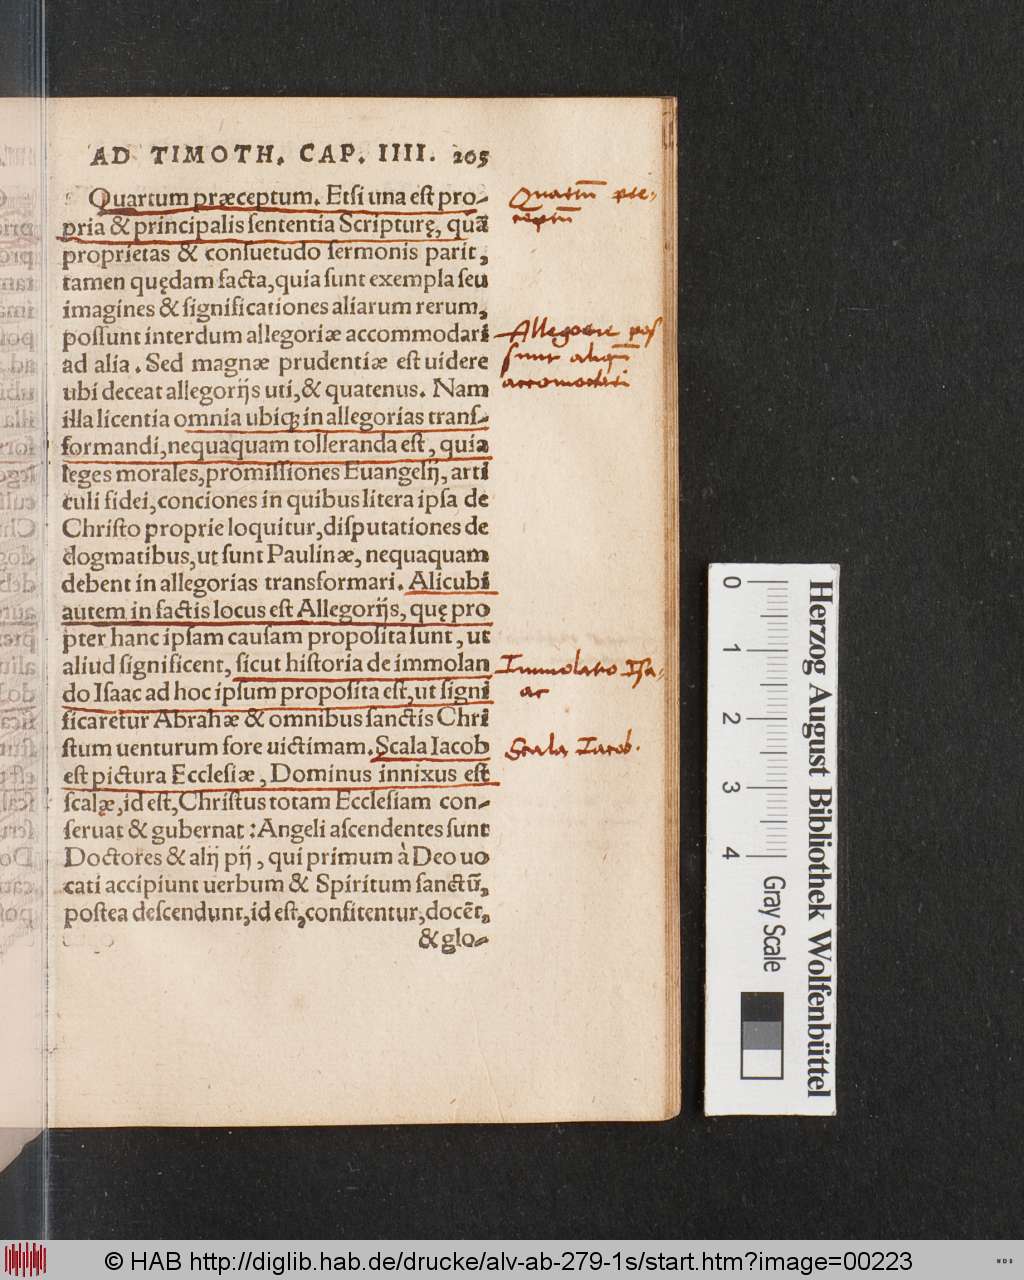 AD TIMOTH. CAP. IIII. 205
Quartum præceptum. Etsi una est pro-
pria & principalis sententia Scripturę, quā
proprietas & consuetudo sermonis parit,
tamen quędam facta, quia sunt exempla seu
imagines & significationes aliarum rerum,
possunt interdum allegoriæ accommodari
ad alia. Sed magnæ prudentiæ est uidere
ubi deceat allegorijs uti, & quatenus. Nam
illa licentia omnia ubiq; in allegorias trans-
formandi, nequaquam tolleranda est, quia
leges morales, promissiones Euangelij, arti
culi fidei, conciones in quibus litera ipsa de
Christo proprie loquitur, disputationes de
dogmatibus, ut sunt Paulinæ, nequaquam
debent in allegorias transformari. Alicubi
autem in factis locus est Allegorijs, quę pro
pter hanc ipsam causam proposita sunt, ut
aliud significent, sicut historia de immolan
do Isaac ad hoc ipsum proposita est, ut signi
ficaretur Abrahæ & omnibus sanctis Chri
stum uenturum fore uictimam. Scala Iacob
est pictura Ecclesiæ, Dominus innixus est
scalę, id est, Christus totam Ecclesiam con-
seruat & gubernat: Angeli ascendentes sunt
Doctores & alij pij, qui primum à Deo uo
cati accipiunt uerbum & Spiritum sanctū,
postea descendunt, id est, confitentur, docēt,
& glo-
Quartū pre-
ceptū
Allegorie pos
sunt aliqn̄
accomodari
Immolatio Isa-
ac
Scala Iacob.
0 1 2 3 4
Gray Scale
Herzog August Bibliothek Wolfenbüttel
© HAB http://diglib.hab.de/drucke/alv-ab-279-1s/start.htm?image=00223